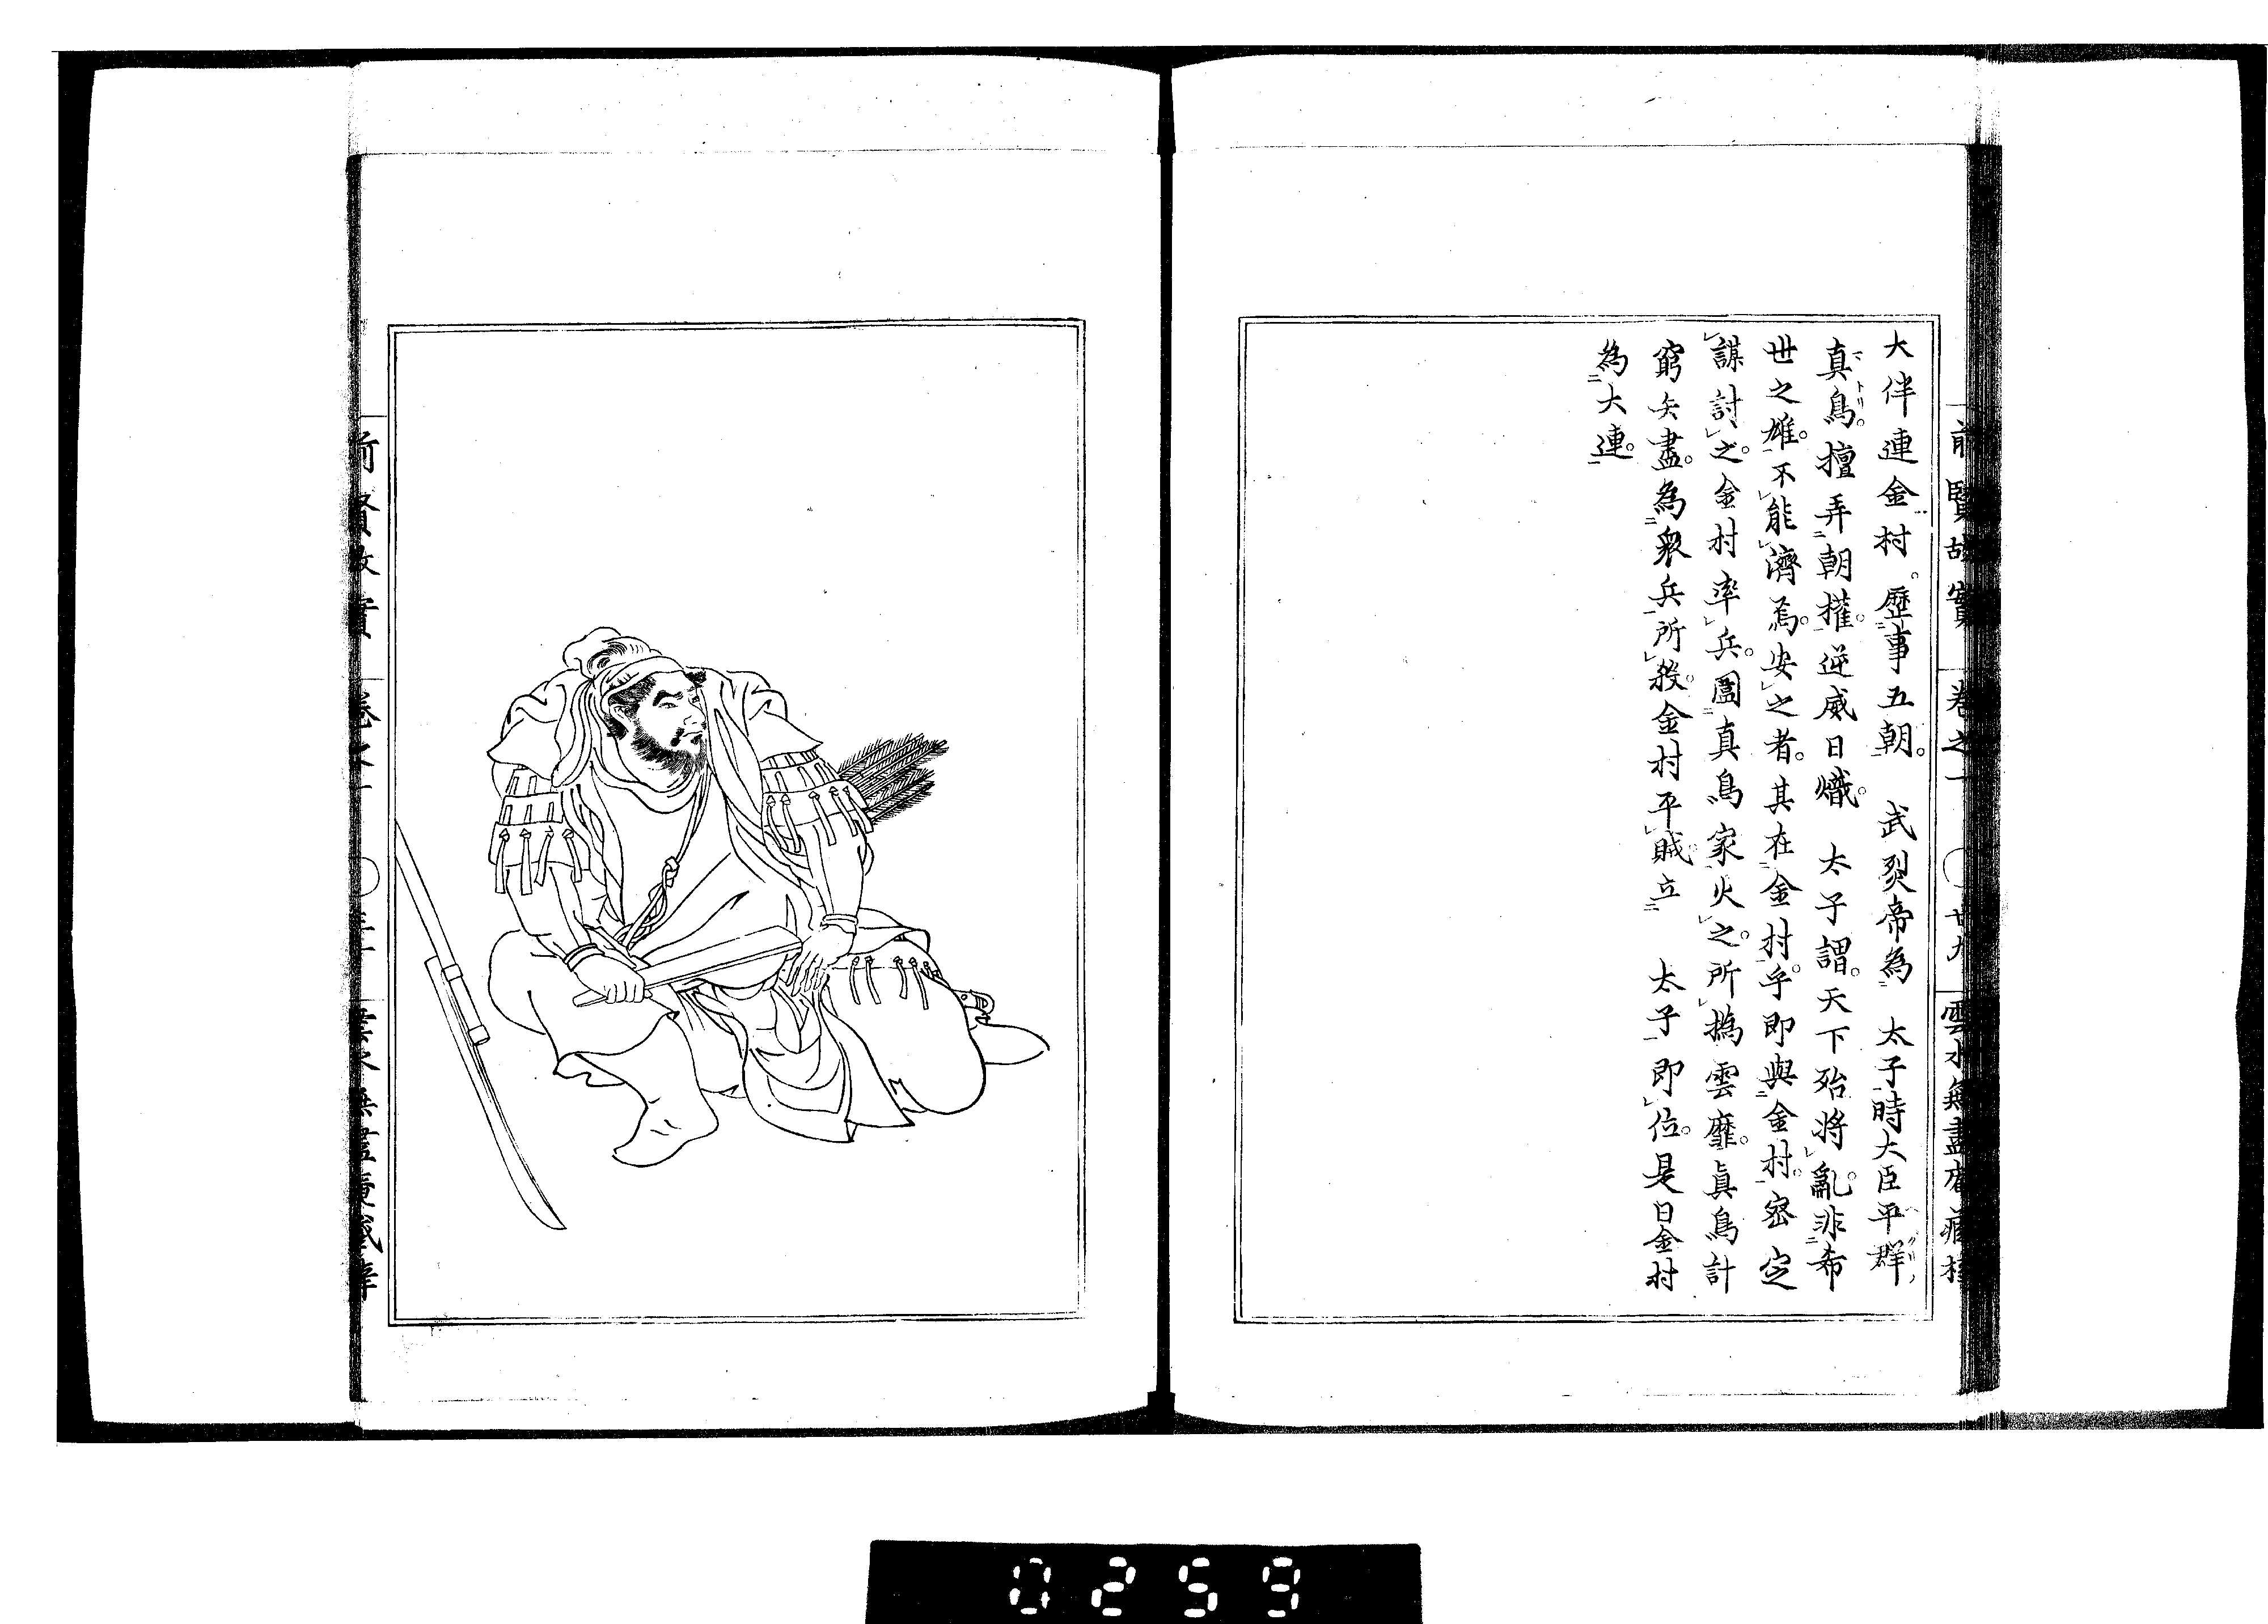 前賢故實 卷之一 廿九 雲水無盡庵藏
大伴連金村。歷事五朝。 武烈帝為 太子時大臣平群
真鳥。擅弄朝權。逆威日熾。 太子謂。天下殆將亂。非希
世之雄。不能濟焉。安之者。其在金村乎。即與金村。密定
謀討之。金村率兵。圍真鳥家火之。所撝雲靡。真鳥計
窮矢盡。為衆兵所殺。金村平賊立 太子即位。是日金村
為大連。
前賢故實
0259